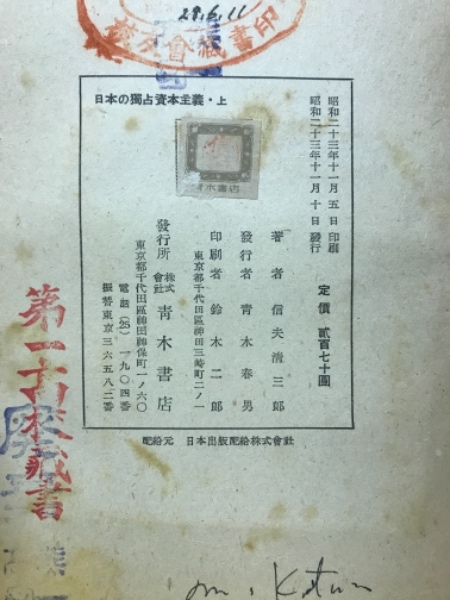 28.6.11
會藏書印
日本の獨占資本主義・上
昭和二十三年十一月五日印刷
昭和二十三年十一月十日發行
定價 貳百七十圓
著者 信夫清三郎
發行者 青木春男
印刷者 鈴木二郎
東京都千代田區神田三崎町二ノ一
發行所 株式會社 青木書店
東京都千代田區神田神保町一ノ六〇
電話(25)一九〇四番
振替東京三六五八二番
青木書店
配給元 日本出版配給株式會社
藏書